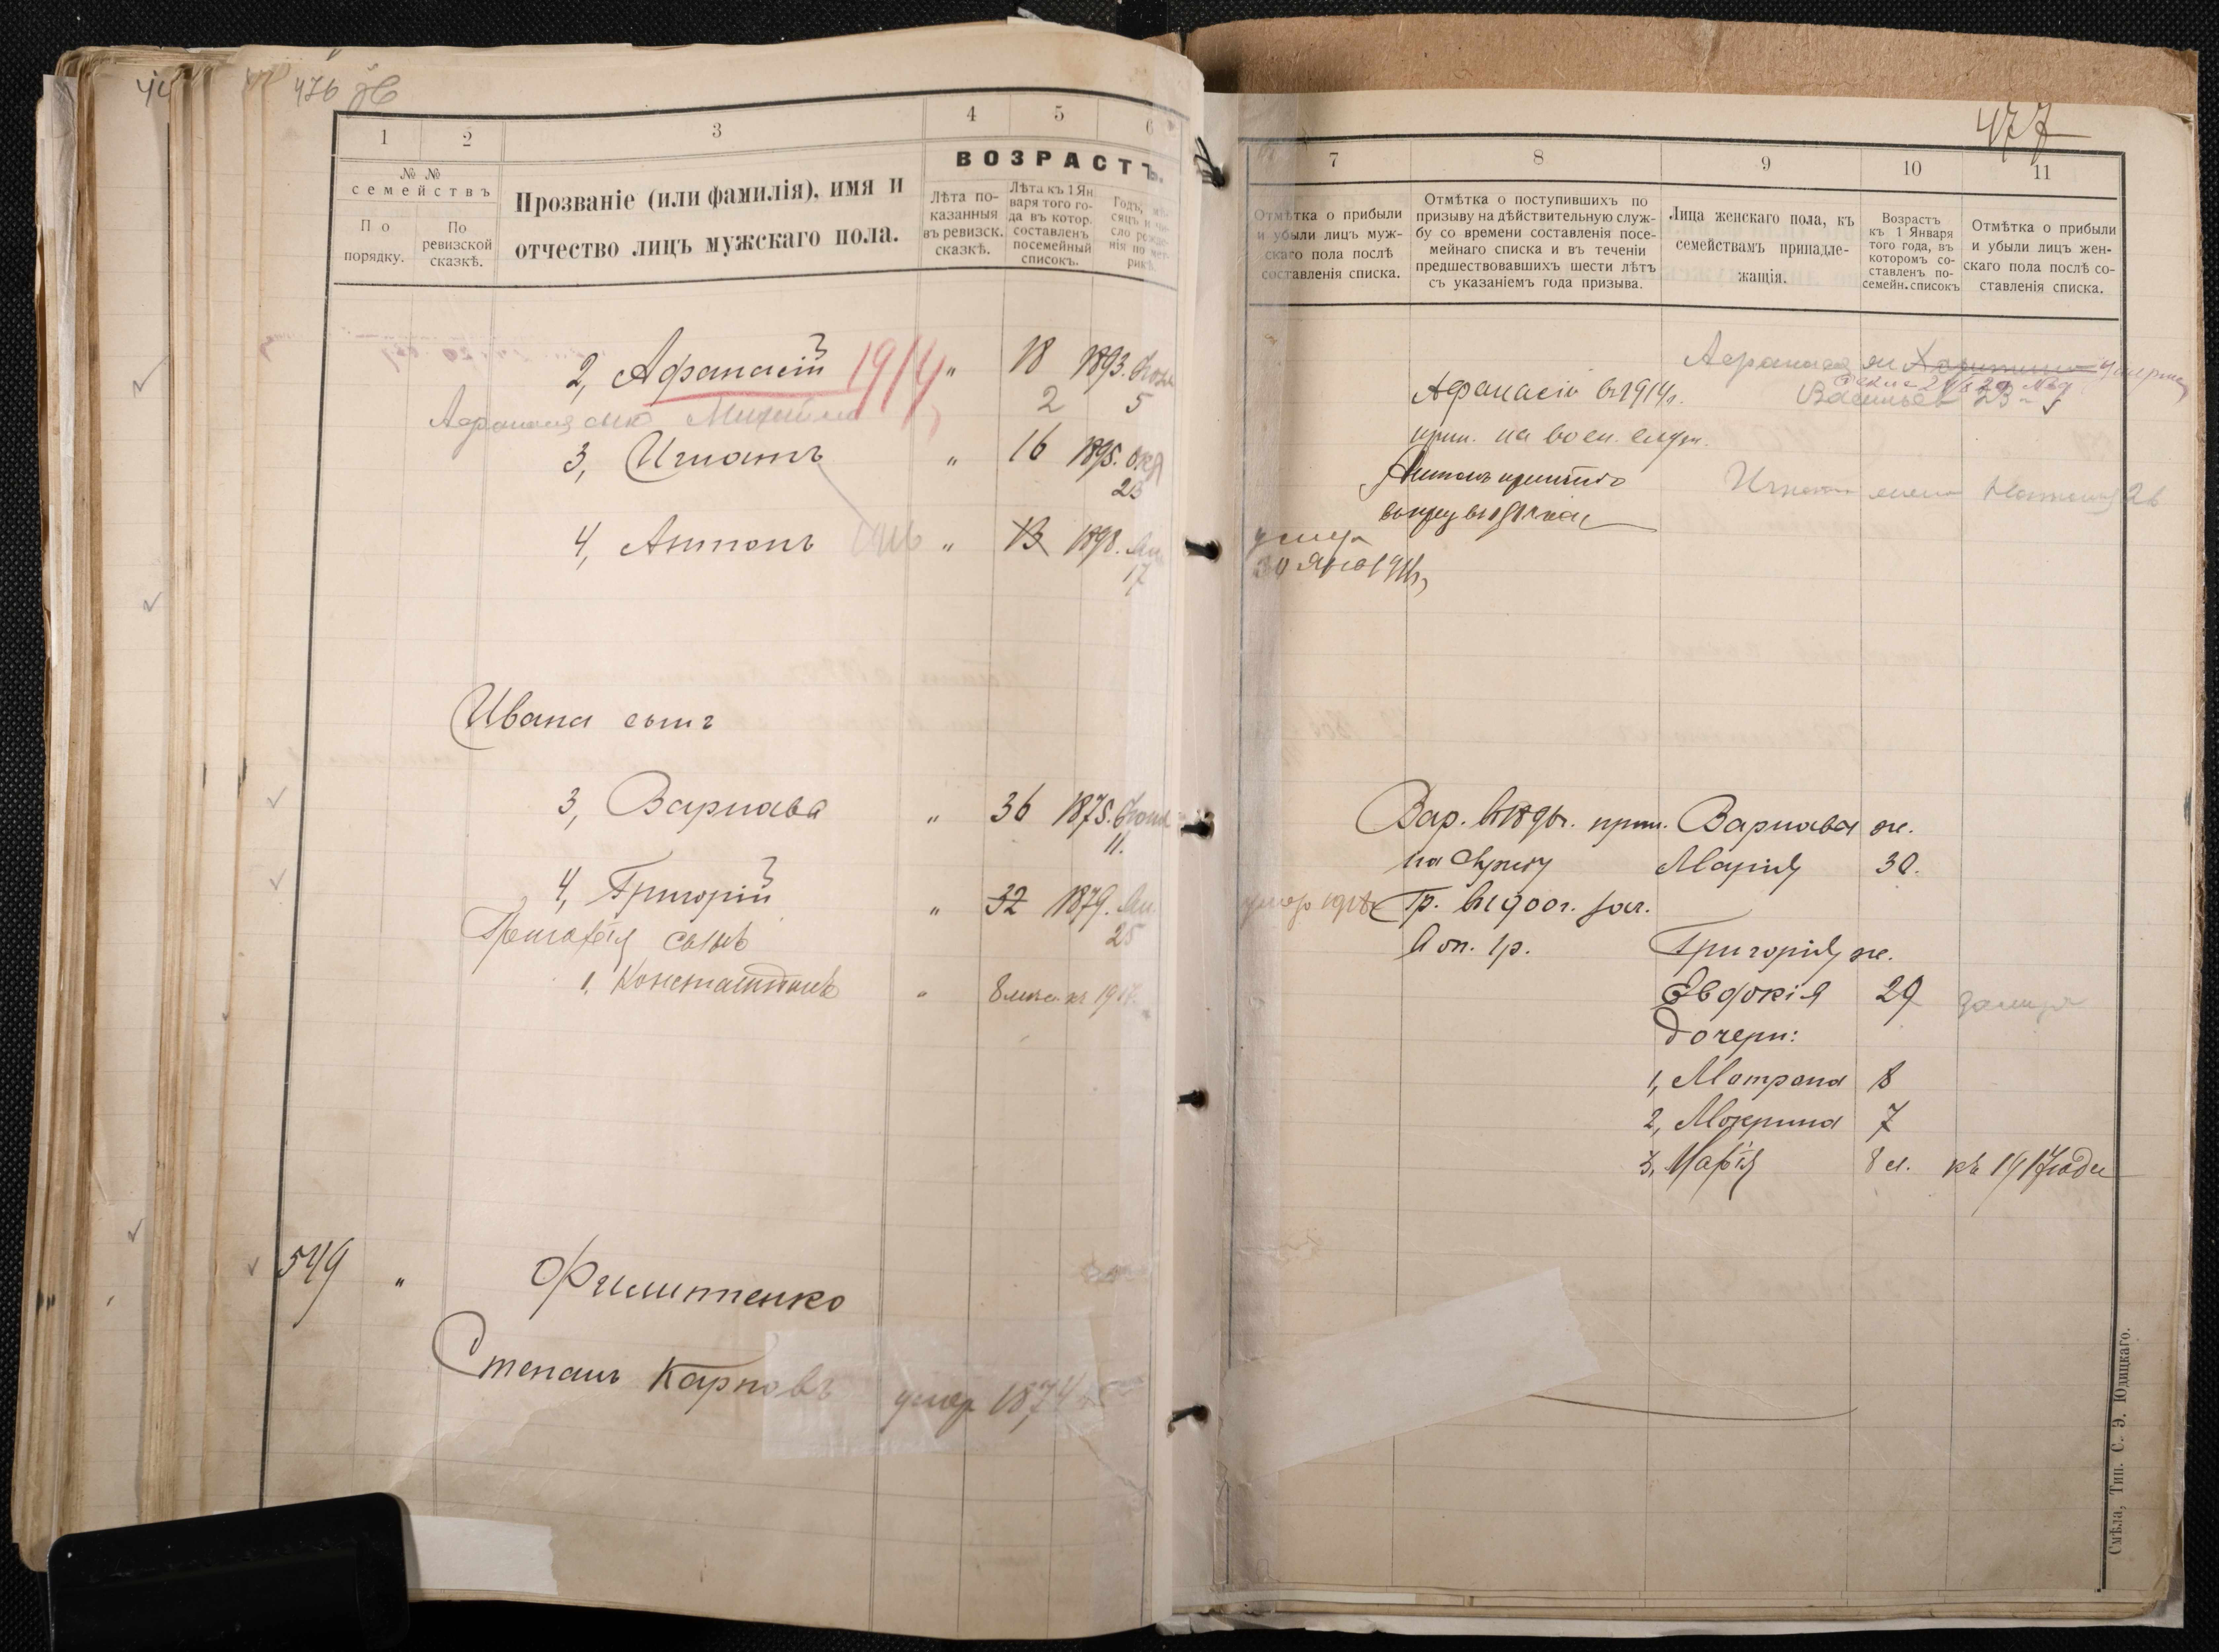 476 об
1
2
3
4
5
6
№ №
семействъ
По
порядку.
По
ревизской
сказкѣ.
Прозваніе (или фамилія), имя и
отчество лицъ мужскаго пола.
ВОЗРАСТЪ.
Лѣта по-
казанныя
въ ревизск.
сказкѣ.
Лѣта къ 1 Ян
варя того го-
да въ котор.
составленъ
посемейный
списокъ.
Годъ, мѣ-
сяцъ и чи-
сло рожде-
нія по мет-
рикѣ.
2, Афанасій 1914 " 18 1893.
Афанасія сынъ Михаилъ 2 5
3, Игнатъ " 16 1895. Окт
23
4, Антонъ " 13 1898.
17
Ивана сыны
3, Варнава " 36 1875. Іюня
11.
4, Григорій " 32 1879.
25
Григорія сынъ
1. Константинъ " 8 мес. къ 1917.
549 " Филипенко
Степанъ Карповъ умер 1874
477
7
8
9
10
11
Отмѣтка о прибыли
и убыли лицъ муж-
скаго пола послѣ
составленія списка.
Отмѣтка о поступившихъ по
призыву на дѣйствительную служ-
бу со времени составленія посе-
мейнаго списка и въ теченіи
предшествовавшихъ шести лѣтъ
съ указаніемъ года призыва.
Лица женскаго пола, къ
семействамъ принадле-
жащія.
Возрастъ
къ 1 Января
того года, въ
которомъ со-
ставленъ по-
семейн. списокъ
Отмѣтка о прибыли
и убыли лицъ жен-
скаго пола послѣ со-
ставленія списка.
Афанасія ж
Афанасій въ 1914 г.
прин. на воен. служ.
Антонъ принятъ
Игната жена Наталия 26
умер
30 Янв 1911
Вар. въ 1896 г. прин. Варнавы ж.
на службу Марія 30.
умер Гр. въ 1900 г. зач.
в оп. 1 р. Григорія ж.
Евдокія 29 замуж
дочери:
1, Матрона 8
2, Мокрина 7
3, Марія 8 м. къ 1917 году
Смѣла, Тип. С. Э. Юдицкаго.